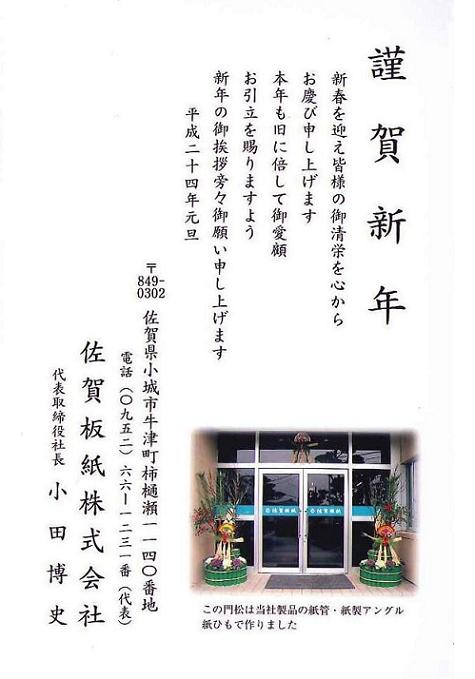 謹賀新年
新春を迎え皆様の御清栄を心から
お慶び申し上げます
本年も旧に倍して御愛顧
お引立を賜りますよう
新年の御挨拶旁々御願い申し上げます
平成二十四年元旦
〒849-0302
佐賀県小城市牛津町柿樋瀬一一四〇番地
電話(〇九五二)六六ー一二三一番(代表)
佐賀板紙株式会社
代表取締役社長 小田博史
佐賀板紙
佐賀板紙
この門松は当社製品の紙管・紙製アングル
紙ひもで作りました